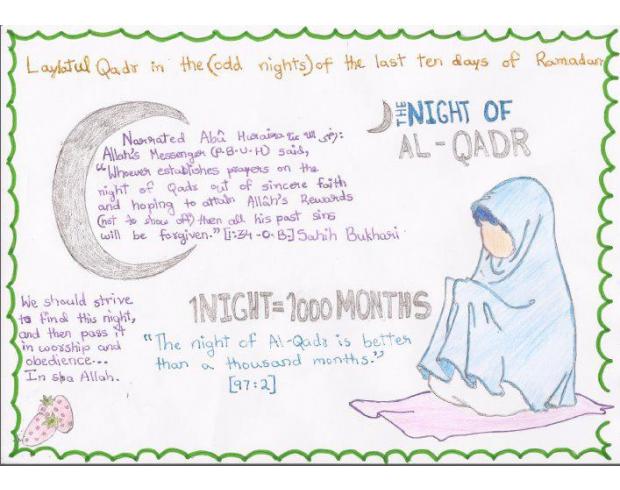 Laylatul Qadr in the (odd nights) of the last ten days of Ramadan
THE NIGHT OF
AL-QADR
Narrated Abû Huraira رضي الله عنه:
Allah's Messenger (P.B.U.H) said,
"Whoever establishes prayers on the
night of Qadr out of sincere faith
and hoping to attain Allâh's Rewards
(not to show off) then all his past sins
will be forgiven." [1:34-O.B] Sahih Bukhari
1 NIGHT = 1000 MONTHS
"The night of Al-Qadr is better
than a thousand months."
[97:2]
We should strive
to find this night,
and then pass it
in worship and
obedience...
In sha Allah.